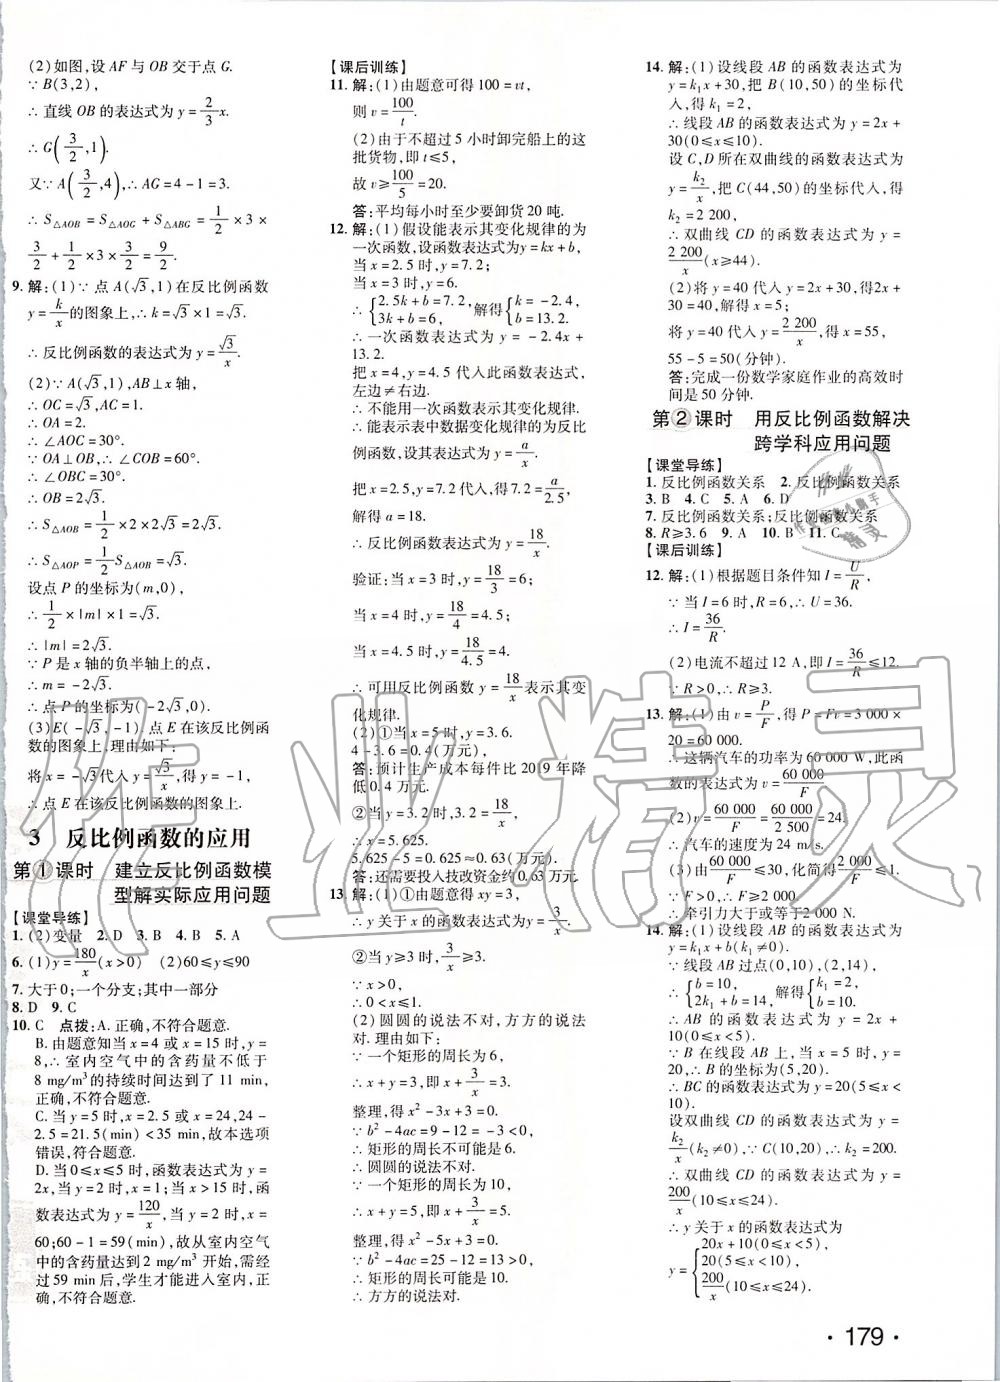 (2)如图,设 AF 与 OB 交于点 G.
∵B(3,2),
∴直线 OB 的表达式为 y=2/3 x.
∴G(3/2,1).
又∵A(3/2,4),∴AG=4-1=3.
∴S△AOB=S△AOG+S△ABG=1/2×3×
3/2+1/2×3×3/2=9/2.
9.解:(1)∵点 A(√3,1)在反比例函数
y=k/x的图象上,∴k=√3×1=√3.
∴反比例函数的表达式为 y=√3/x.
(2)∵A(√3,1),AB⊥x 轴,
∴OC=√3,AC=1.
∴OA=2.
∴∠AOC=30°.
∵OA⊥OB,∴∠COB=60°.
∴∠OBC=30°.
∴OB=2√3.
∴S△AOB=1/2×2×2√3=2√3.
∴S△AOP=1/2S△AOB=√3.
设点 P 的坐标为(m,0),
∴1/2×|m|×1=√3.
∴|m|=2√3.
∵P 是 x 轴的负半轴上的点,
∴m=-2√3.
∴点 P 的坐标为(-2√3,0)
(3)E(-√3,-1) 点 E 在该反比例函
数的图象上.理由如下:
将 x=-√3代入 y=√3/x,得 y=-1,
∴点 E 在该反比例函数的图象上.
3 反比例函数的应用
第①课时 建立反比例函数模
型解实际应用问题
【课堂导练】
1.(2)变量 2.D 3.B 4.B 5.A
6.(1)y=180/x(x>0) (2)60≤y≤90
7.大于0;一个分支;其中一部分
8.D 9.C
10.C 点拨:A.正确,不符合题意.
B.由题意知当 x=4 或 x=15 时,y=
8,∴室内空气中的含药量不低于
8 mg/m³的持续时间达到了 11 min,
正确,不符合题意.
C.当 y=5 时,x=2.5 或 x=24,24-
2.5=21.5(min)<35 min,故本选项
错误,符合题意.
D.当 0≤x≤5 时,函数表达式为 y=
2x,当 y=2 时,x=1;当 x>15 时,函
数表达式为 y=120/x,当 y=2 时,x=
60;60-1=59(min),故从室内空气
中的含药量达到 2 mg/m³ 开始,需经
过59 min 后,学生才能进入室内,正
确,不符合题意.
【课后训练】
11.解:(1)由题意可得 100=vt,
则 v=100/t.
(2)由于不超过 5 小时卸完船上的这
批货物,即 t≤5,
故 v≥100/5=20.
答:平均每小时至少要卸货 20 吨.
12.解:(1)假设能表示其变化规律的为
一次函数,设函数表达式为y=kx+b,
当 x=2.5 时,y=7.2;
当 x=3 时,y=6.
∴{2.5k+b=7.2, 3k+b=6, 解得{k=-2.4, b=13.2.
∴一次函数表达式为 y=-2.4x+
13.2.
把 x=4,y=4.5 代入此函数表达式,
左边≠右边.
∴不能用一次函数表示其变化规律.
∴能表示表中数据变化规律的为反比
例函数,设函数表达式为 y=a/x.
把 x=2.5,y=7.2代入,得7.2=a/2.5,
解得 a=18.
∴反比例函数表达式为 y=18/x.
验证:当 x=3 时,y=18/3=6;
当 x=4 时,y=18/4=4.5;
当 x=4.5 时,y=18/4.5=4.
∴可用反比例函数 y=18/x表示其变
化规律.
(2)①当 x=5 时,y=3.6.
4-3.6=0.4(万元),
答:预计生产成本每件比 2019 年降
低 0.4 万元.
②当 y=3.2 时,3.2=18/x,
∴x=5.625.
5.625-5=0.625≈0.63(万元).
答:还需要投入技改资金约 0.63 万元.
13.解:(1)①由题意得 xy=3,
∴y 关于 x 的表达式为y=3/x.
②当 y≥3 时,3/x≥3.
∵x>0,
∴0<x≤1.
(2)圆圆的说法不对,方方的说法
对.理由如下:
∵一个矩形的周长为 6,
∴x+y=3,即 x+3/x=3.
整理,得 x²-3x+3=0.
∵b²-4ac=9-12=-3<0,
∴矩形的周长不可能是 6.
∴圆圆的说法不对.
∵一个矩形的周长为 10,
∴x+y=5,即 x+3/x=5.
整理,得 x²-5x+3=0.
∵b²-4ac=25-12=13>0,
∴矩形的周长可能是 10.
∴方方的说法对.
14.解:(1)设线段 AB 的函数表达式为
y=k₁x+30,把 B(10,50)的坐标代
入,得 k₁=2,
∴线段 AB 的函数表达式为 y=2x+
30(0≤x≤10).
设 C,D 所在双曲线的函数表达式为
y=k₂/x,把 C(44,50)的坐标代入,得
k₂=2 200,
∴双曲线 CD 的函数表达式为 y=
2 200/x(x≥44).
(2)将 y=40 代入 y=2x+30,得2x+
30=40,解得 x=5;
将 y=40 代入 y=2 200/x,得 x=55,
55-5=50(分钟).
答:完成一份数学家庭作业的高效时
间是 50 分钟.
第②课时 用反比例函数解决
跨学科应用问题
【课堂导练】
1.反比例函数关系 2.反比例函数关系
3.B 4.C 5.A 6.D
7.反比例函数关系;反比例函数关系
8.R≥3.6 9.A 10.B 11.C
【课后训练】
12.解:(1)根据题目条件知 I=U/R,
∵当 I=6 时,R=6,∴U=36.
∴I=36/R.
(2)电流不超过 12 A,即 I=36/R≤12.
∵R>0,∴R≥3.
13.解:(1)由 v=P/F,得 P=Fv=3 000×
20=60 000.
∴这辆汽车的功率为 60 000 W,此函
数的表达式为 v=60 000/F.
(2)v=60 000/F=60 000/2 500=24.
∴汽车的速度为 24 m/s.
(3)由 v=60 000/F≤30,化简得 60 000≤
30F,
∴牵引力大于或等于 2 000 N.
14.解:(1)设线段 AB 的函数表达式为
y=k₁x+b(k₁≠0).
∵线段 AB 过点(0,10),(2,14),
∴{b=10, 2k₁+b=14, 解得{k₁=2, b=10.
∴AB 的函数表达式为 y=2x+
10(0≤x<5).
∵B 在线段 AB 上,当 x=5 时,y=
20,∴B 的坐标为(5,20).
∴BC的函数表达式为 y=20(5≤x<
10).
设双曲线 CD 的函数表达式为 y=
k₂/x(k₂≠0),∵C(10,20),∴k₂=200.
∴双曲线 CD 的函数表达式为 y=
200/x(10≤x≤24).
∴y 关于 x 的函数表达式为
y={2x+10(0≤x<5), 20(5≤x<10), 200/x(10≤x≤24).
·179·
作业精灵